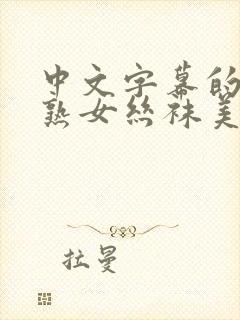 中文字幕的
熟女丝袜美
拉曼